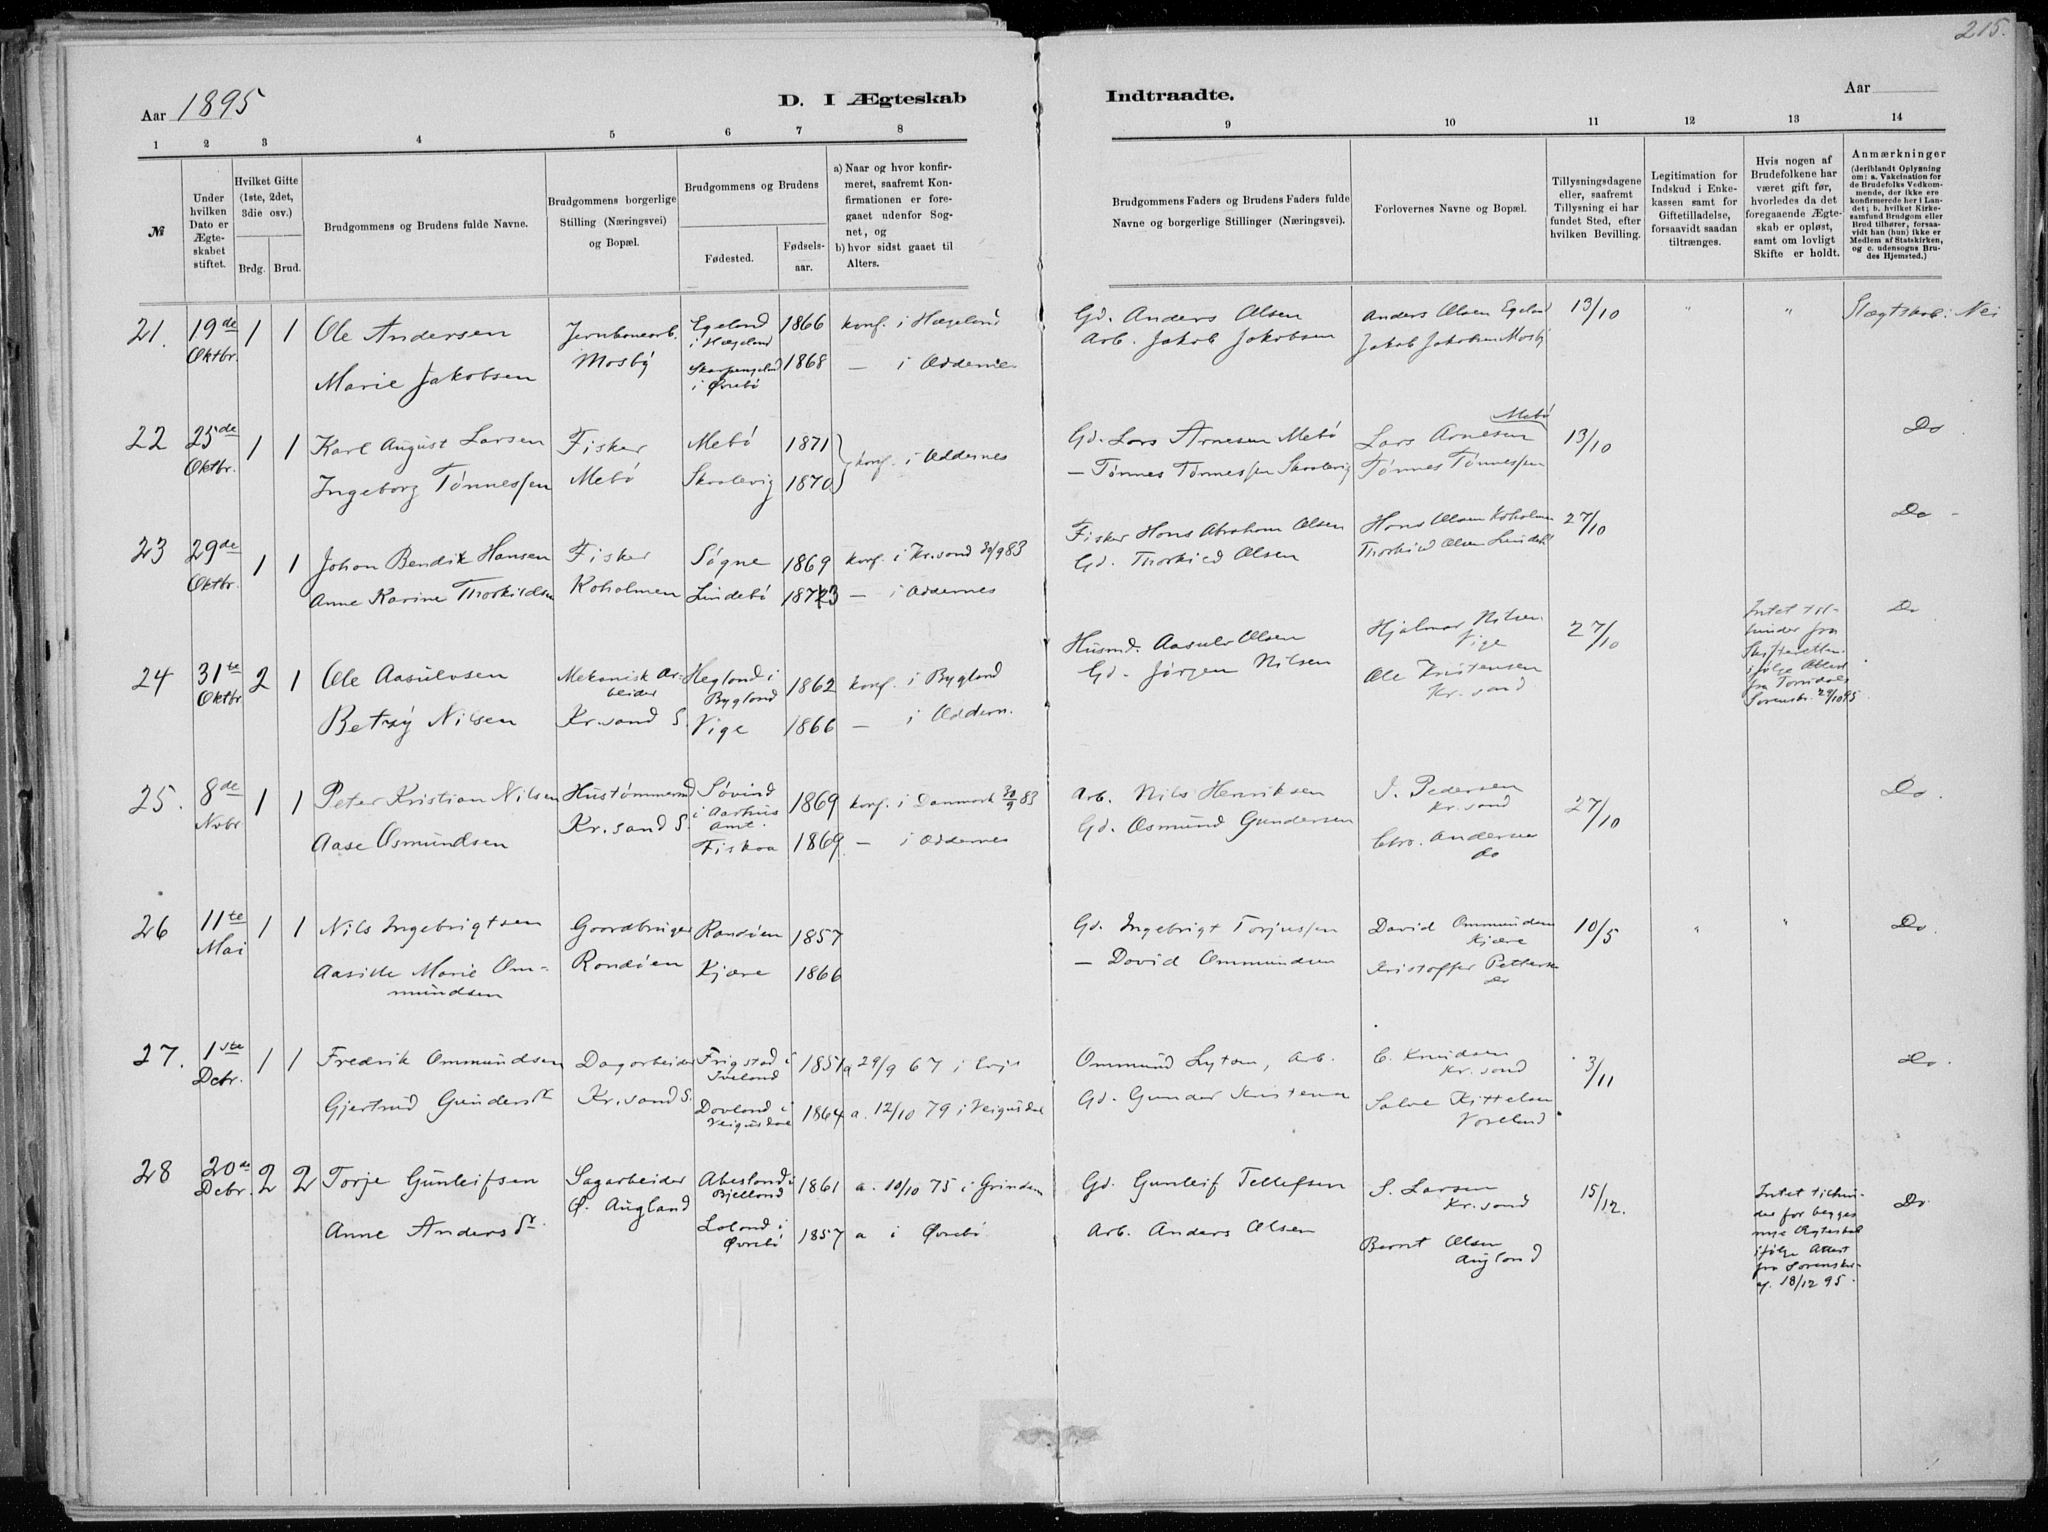 215.
Aar 1895
D. I Ægteskab Indtraadte.
Aar
1 2 3 4 5 6 7 8 9 10 11 12 13 14
№
Under hvilken Dato er Ægteskabet stiftet.
Hvilket Gifte (1ste, 2det, 3die osv.)
Brdg. Brud.
Brudgommens og Brudens fulde Navne.
Brudgommens borgerlige Stilling (Næringsvei) og Bopæl.
Brudgommens og Brudens
Fødested.
Fødselsaar.
a) Naar og hvor konfirmeret, saafremt Konfirmationen er foregaaet udenfor Sognet, og
b) hvor sidst gaaet til Alters.
Brudgommens Faders og Brudens Faders fulde Navne og borgerlige Stillinger (Næringsvei).
Forlovernes Navne og Bopæl.
Tillysningsdagene eller, saafremt Tillysning ei har fundet Sted, efter hvilken Bevilling.
Legitimation for Indskud i Enkekassen samt for Giftetilladelse, forsaavidt saadan tiltrænges.
Hvis nogen af Brudefolkene har været gift før, hvorledes da det foregaaende Ægteskab er opløst, samt om lovligt Skifte er holdt.
Anmærkninger
(deriblandt Oplysning om: a. Vakcination for de Brudefolks Vedkommende, der ikke ere konfirmerede her i Landet; b. hvilket Kirkesamfund Brudgom eller Brud tilhører, forsaavidt han (hun) ikke er Medlem af Statskirken, og c. udensogns Brudes Hjemsted.)
21. 19de Oktbr. 1 1 Ole Andersen Jernbanearb. Mosby Egeland i Hægeland 1866 konf. i Hægeland Gd. Anders Olsen Anders Olsen Egeland 13/10 " " Slægtskab: Nei
Marie Jakobsen Skarpengland i Øvrebø 1868 — i Oddernes Arb. Jakob Jakobsen Jakob Jakobsen Mosby
22 25de Oktbr. 1 1 Karl August Larsen Fisker Mebø Mebø 1871 konf. i Oddernes Gd. Lars Arnesen Mebø Lars Arnesen Mebø 13/10 Do
Ingeborg Tønnessen Skaalevig 1870 — Tønnes Tønnessen Skaalevig Tønnes Tønnessen
23 29de Oktbr. 1 1 Johan Bendik Hansen Fisker Koholmen Søgne 1869 konf. i Kr.sand 30/9 83 Fisker Hans Abraham Olsen Hans Olsen Koholmen 27/10 Do
Anne Karine Thorkildsen Lindebø 1873 — i Oddernes Gd. Thorkild Olsen Thorkild Olsen Lindebø
24 31te Oktbr. 2 1 Ole Aasulvsen Mekanisk Arbeider Kr.sand S. Hegland i Bygland 1862 konf. i Bygland Husmd. Aasulv Olsen Hjalmar Nilsen Vige 27/10 Intet til hinder fra Skifteretten ifølge Attest fra Torridals Sorenskr. 29/10 95 Do
Betzy Nilsen Vige 1866 — i Oddern. Gd. Jørgen Nilsen Ole Kristensen Kr.sand
25. 8de Nvbr. 1 1 Peter Kristian Nilsen Hustømmermd Kr.sand S. Søvind i Aarhus Amt. 1869 konf. i Danmark 30/9 83 Arb. Nils Henriksen J. Pedersen Kr.sand 27/10 Do.
Aase Osmundsen Fiskaa 1869. — i Oddernes Gd. Osmund Gundersen Chr. Andersen do
26 11te Mai 1 1 Nils Ingebrigtsen Gaardbruger Randøen Randøen 1857 Gd. Ingebrigt Torjussen David Ommundsen Kjære 10/5 " " Do.
Aasille Marie Ommundsen Kjære 1866 — David Ommundsen Kristoffer Pettersen do
27. 1ste Dcbr. 1 1 Fredrik Ommundsen Dagarbeider Kr.sand S. Frigstad i Iveland 1851 a 29/9 67 i Evje Ommund Lytom, Arb. C. Knudsen Kr.sand 3/11 Do.
Gjertrud Gundersdr Dovland i Veigusdal 1864 a. 12/10 79 i Veigusdal Gd. Gunder Kristensen Salve Kittelsen
28 20de Dcbr. 2 2 Torje Gunleifsen Sagarbeider Ø. Augland Abesland i Bjelland 1861 a. 10/10 75 i Grindem Gd. Gunleif Tellefsen S. Larsen Kr.sand 15/12. Intet til hinder for begges nye Ægteskab ifølge Attest fra Sorenskr. af. 18/12 95. Do
Anne Andersdr. Loland i Øvrebø 1857 a i Øvrebø Arb. Anders Olsen Bernt Olsen Augland